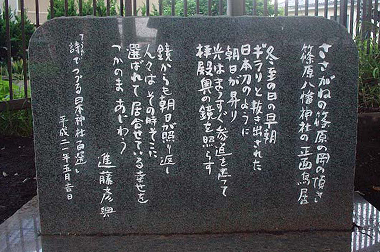 ささがねの篠原の岡の頂き
篠原八幡神社の正面鳥居
冬至の日の早朝
ギラリと抜き出された
日本刀のように
朝日が昇り
光はまっすぐ参道を差して
拝殿奥の鏡を照らす
鏡からも朝日が照り返し
人々は その時そこに
選ばれて居合せている幸せを
つかのま あじわう
進藤彦興
詩でつづる日本神社百選
平成二一年五月吉日